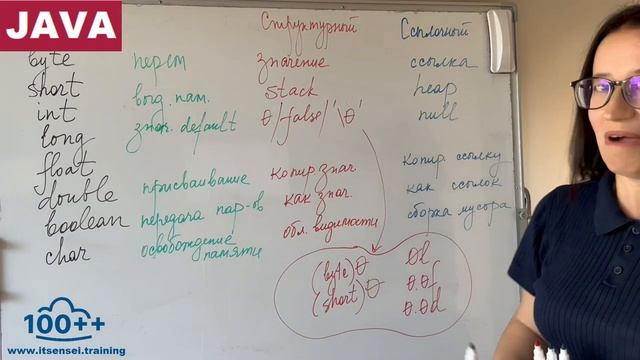 JAVA
Структурный Ссылочный
byte перем значение ссылка
short выд. пам. stack heap
int знач. default 0/false/'\0' null
long
float копир знач. копир. ссылку
double присваивание как знач. как ссылок
boolean передача пар-ов обл. видимости сборка мусора
char освобождение
памяти
(byte) 0 0l
(short) 0 0.0f
0.0d
100++
www.itsensei.training